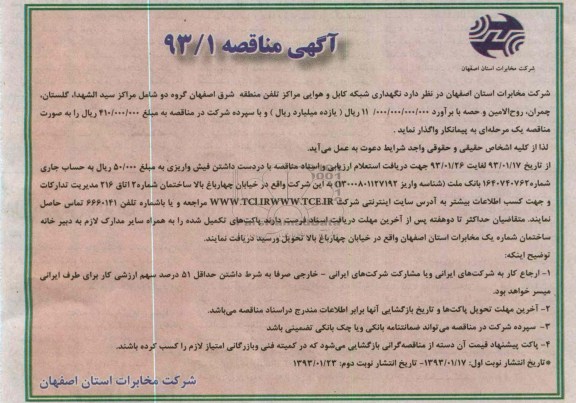 آگهی مناقصه ۹۳/۱
شرکت مخابرات استان اصفهان
شرکت مخابرات استان اصفهان در نظر دارد نگهداری شبکه کابل و هوایی مراکز تلفن منطقه شرق اصفهان گروه دو شامل مراکز سید الشهدا، گلستان،
چمران، روح‌الامین و حصه با برآورد ۱۱/۰۰۰/۰۰۰/۰۰۰ ریال ( یازده میلیارد ریال ) و با سپرده شرکت در مناقصه به مبلغ ۴۱۰/۰۰۰/۰۰۰ ریال را به صورت
مناقصه یک مرحله‌ای به پیمانکار واگذار نماید .
لذا از کلیه اشخاص حقیقی و حقوقی واجد شرایط دعوت به عمل می‌آید.
از تاریخ ۹۳/۰۱/۱۷ لغایت ۹۳/۰۱/۲۶ جهت دریافت استعلام ارزیابی و اسناد مناقصه با دردست داشتن فیش واریزی به مبلغ ۵۰/۰۰۰ ریال به حساب جاری
شماره ۱۶۴۰۷۴۰۷۶۲ بانک ملت (شناسه واریز ۱۳۰۰۰۸۰۱۱۲۷۱۹۲) به این شرکت واقع در خیابان چهارباغ بالا ساختمان شماره۲ اتاق ۲۱۶ مدیریت تدارکات
و جهت کسب اطلاعات بیشتر به آدرس سایت اینترنتی شرکت WWW.TCI.IR WWW.TCE.IR مراجعه و یا باشماره تلفن ۶۶۶۰۱۴۱ تماس حاصل
نمایند. متقاضیان حداکثر تا دوهفته پس از آخرین مهلت دریافت اسناد فرصت دارند پاکت‌های تکمیل شده را به همراه سایر مدارک لازم به دبیر خانه
ساختمان شماره یک مخابرات استان اصفهان واقع در خیابان چهارباغ بالا تحویل ورسید دریافت نمایند.
توضیح اینکه:
۱- ارجاع کار به شرکت‌های ایرانی ویا مشارکت شرکت‌های ایرانی - خارجی صرفا به شرط داشتن حداقل ۵۱ درصد سهم ارزشی کار برای طرف ایرانی
میسر خواهد بود.
۲- آخرین مهلت تحویل پاکت‌ها و تاریخ بازگشایی آنها برابر اطلاعات مندرج دراسناد مناقصه می‌باشد.
۳- سپرده شرکت در مناقصه می‌تواند ضمانتنامه بانکی ویا چک بانکی تضمینی باشد
۴- پاکت پیشنهاد قیمت آن دسته از مناقصه‌گرانی بازگشایی می‌شود که در کمیته فنی وبازرگانی امتیاز لازم را کسب کرده باشند.
*تاریخ انتشار نوبت اول: ۱۳۹۳/۰۱/۱۷- تاریخ انتشار نوبت دوم: ۱۳۹۳/۰۱/۲۳
شرکت مخابرات استان اصفهان